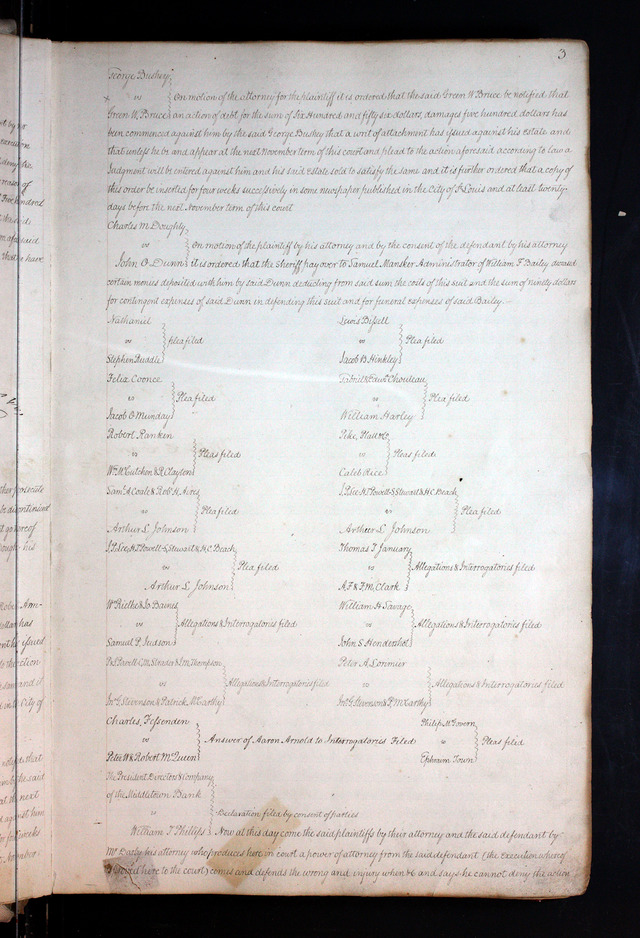 3
George Bushey
vs } On motion of the attorney for the plaintiff it is ordered that the said Green W Bruce be notified that
Green W. Bruce } an action of debt for the sum of Six Hundred and fifty six dollars, damages five hundred dollars has
been commenced against him by the said George Bushey that a writ of attachment has issued against his estate and
that unless he be and appear at the next November term of this court and plead to the action aforesaid according to law a
Judgment will be entered against him and his said Estate sold to satisfy the same and it is further ordered that a copy of
this order be inserted for four weeks successively in some newspaper published in the City of St Louis and at least twenty-
days before the next November term of this court
Charles M Doughty
vs } On motion of the plaintiff by his attorney and by the consent of the defendant by his attorney
John O Dunn } it is ordered that the sheriff pay over to Samuel Mansker Administrator of William F Bailey deceased
certain monies deposited with him by said Dunn deducting from said sum the costs of this suit and the sum of ninety dollars
for contingent expenses of said Dunn in defending this suit and for funeral expenses of said Bailey.
Nathaniel
vs } plea filed
Stephen Ruddle
Lewis Bissell
vs } Plea filed
Jacob B Hinkley
Felix Coonce
vs } Plea filed
Jacob O Munday
Gabriel & Edwd. Chouteau
vs } Plea filed
William Harley
Robert Ranken
vs } Pleas filed
Wm McCutchen & R Clayton
Pike, Platt & Co
vs } Pleas filed
Caleb Rice
Saml. A Coale & Robt. H. Acres
vs } Plea filed
Arthur L Johnson
Powell S Stewart & H C Beach
vs } Plea filed
Arthur L Johnson
Powell S Stewart & H.C. Beach
vs } Plea filed
Arthur L Johnson
Thomas T January
vs } Allegations & Interrogatories filed
A. F & F. M. Clark
Baines
} Allegations & Interrogatories filed
Samuel P. Judson
William H Savage
vs } Allegations & Interrogatories filed
John S Hendershot
Thompson
vs } Allegations & Interrogatories filed
Jno. G Stevenson & Patrick McCarthy
Peter A Lorimier
vs } Allegations & Interrogatories filed
Jno. G Stevenson & P. McCarthy
Charles, Fessenden
vs } Answer of Aaron Arnold to Interrogatories Filed
Peter W & Robert McQueen
Philip McGovern
vs } Pleas filed
Ephraim Town
The President Directors & Company
of the Middletown Bank
vs } Declaration filed by consent of parties
William T Phillips } Now at this day come the said plaintiffs by their attorney and the said defendant by
Mr Darby his attorney who produces here in court a power of attorney from the said defendant (the Execution whereof
is proved here to the court) comes and defends the wrong and injury when &c and says he cannot deny the action